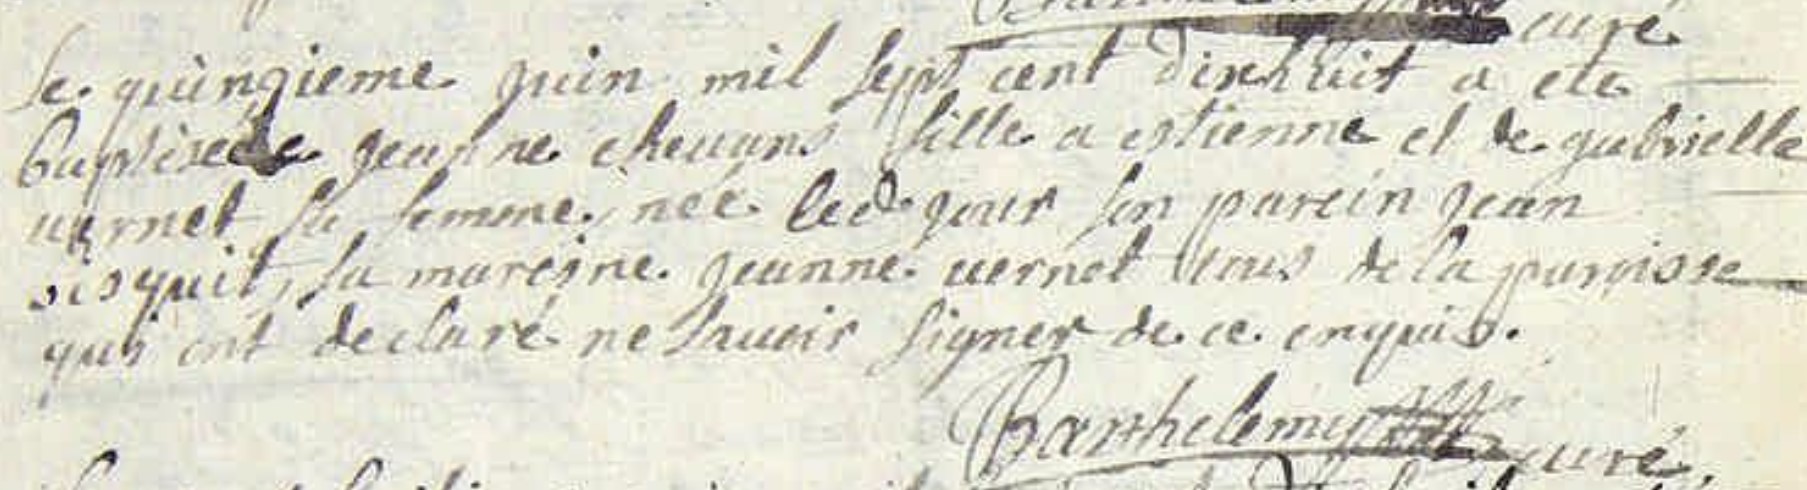 curé
le quinzieme juin mil sept cent dixhuit a ete
baptisée jeanne cheuans fille a estienne et de gabrielle
uernet sa femme, née led jour son parein jean
sisquit, sa mareine jeanne uernet tous de la paroisse
qui ont declaré ne sauoir signer de ce enquis.
Barthelemy curé.